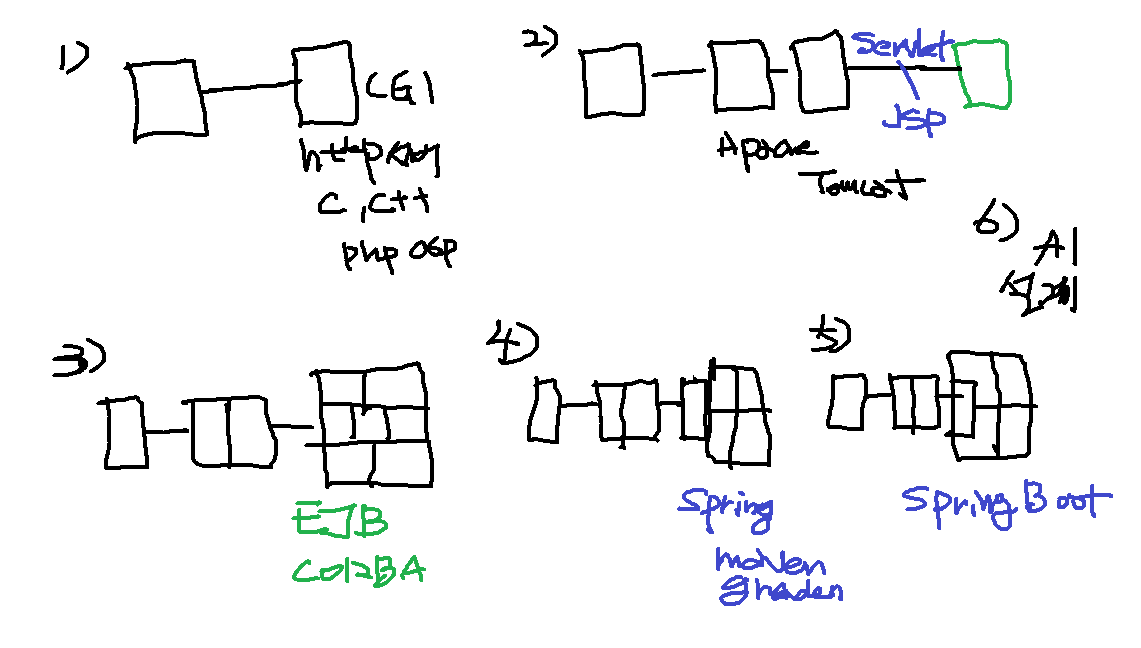 1)
CGI
http
C, C++
php asp
2)
Servlet
JSP
Apache
Tomcat
6)
AI
3)
EJB
CORBA
4)
Spring
maven
graden
5)
Spring Boot